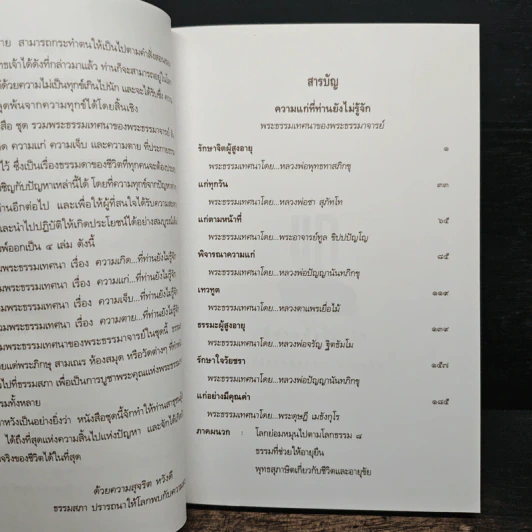 าย สามารถกระทำตนให้เป็นไปตามคำสั่งสอนของ
ทธเจ้าได้ดังที่กล่าวมาแล้ว ท่านก็จะสามารถอยู่ในโลก
ด้วยความไม่เป็นทุกข์เกินไปนัก และจะได้รับซึ่ง ความ
ลุดพ้นจากความทุกข์ได้โดยสิ้นเชิง
สือ ชุด รวมพระธรรมเทศนาของพระธรรมาจารย์
ิด ความแก่ ความเจ็บ และความตาย ที่ประกาย
ไว้ ซึ่งเป็นเรื่องธรรมดาของชีวิตที่ทุกคนจะต้องประ
ชิญกับปัญหาเหล่านี้ได้ โดยที่ความทุกข์จากปัญหา
ท่านอีกต่อไป และเพื่อให้ผู้ที่สนใจได้รับความ
และนำไปปฏิบัติให้เกิดประโยชน์ได้อย่างสมบูรณ์
พ์ออกเป็น ๔ เล่ม ดังนี้
มพระธรรมเทศนา เรื่อง ความเกิด...ที่ท่านยังไม่รู้จัก
มพระธรรมเทศนา เรื่อง ความแก่...ที่ท่านยังไม่รู้จัก
มพระธรรมเทศนา เรื่อง ความเจ็บ...ที่ท่านยังไม่รู้จัก
มพระธรรมเทศนา เรื่อง ความตาย...ที่ท่านยังไม่รู้จัก
มพระธรรมเทศนาของพระธรรมาจารย์ในชุดนี้
ยแด่พระภิกษุ สามเณร ห้องสมุด หรือวัดต่างๆ
ไปที่ธรรมสภา เพื่อเป็นการบูชาพระคุณแห่งพระธรรม
รมทั้งหลาย
าหวังเป็นอย่างยิ่งว่า หนังสือชุดนี้จักทำให้ท่านสาธุชน
ได้ถึงที่สุดแห่งความสิ้นไปแห่งปัญหา และจักได้
จริงของชีวิตได้ในที่สุด
ด้วยความสุจริต หวังดี
ธรรมสภา ปรารถนาให้โลกพบกับความ
สารบัญ
ความแก่ที่ท่านยังไม่รู้จัก
พระธรรมเทศนาของพระธรรมาจารย์
รักษาจิตผู้สูงอายุ ๑
พระธรรมเทศนาโดย...หลวงพ่อพุทธทาสภิกขุ
แก่ทุกวัน ๓๓
พระธรรมเทศนาโดย...หลวงพ่อชา สุภัทโท
แก่ตามหน้าที่ ๖๕
พระธรรมเทศนาโดย...พระอาจารย์ทูล ขิปปปัญโญ
พิจารณาความแก่ ๘๕
พระธรรมเทศนาโดย...หลวงพ่อปัญญานันทภิกขุ
เทวทูต ๑๑๙
พระธรรมเทศนาโดย...หลวงตาแพรเยื่อไม้
ธรรมะผู้สูงอายุ ๑๓๙
พระธรรมเทศนาโดย...หลวงพ่อจรัญ ฐิตธัมโม
รักษาใจวัยชรา ๑๕๗
พระธรรมเทศนาโดย...หลวงพ่อปัญญานันทภิกขุ
แก่อย่างมีคุณค่า ๑๘๕
พระธรรมเทศนาโดย...พระดุษฎี เมธังกุโร
ภาคผนวก โลกย่อมหมุนไปตามโลกธรรม ๘
ธรรมที่ช่วยให้อายุยืน
พุทธสุภาษิตเกี่ยวกับชีวิตและอายุขัย